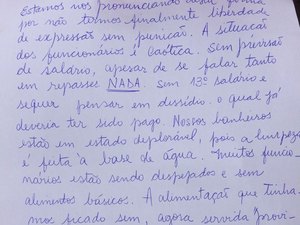 Estamos nos pronunciando desta forma
por não termos finalmente liberdade
de expressão sem punição. A situação
dos funcionários é caótica. Sem previsão
de salário, apesar de se falar tanto
em repasses NADA. Sem 13º salário e
sequer pensar em dissídio. o qual já
deveria ter sido pago. Nossos banheiros
estão em estado deplorável, pois a limpeza
é feita a base de água. Muitos funcio-
nários estão sendo despejados e sem
alimentos básicos. A alimentação que tinha-
mos ficado sem, agora servida "provi-